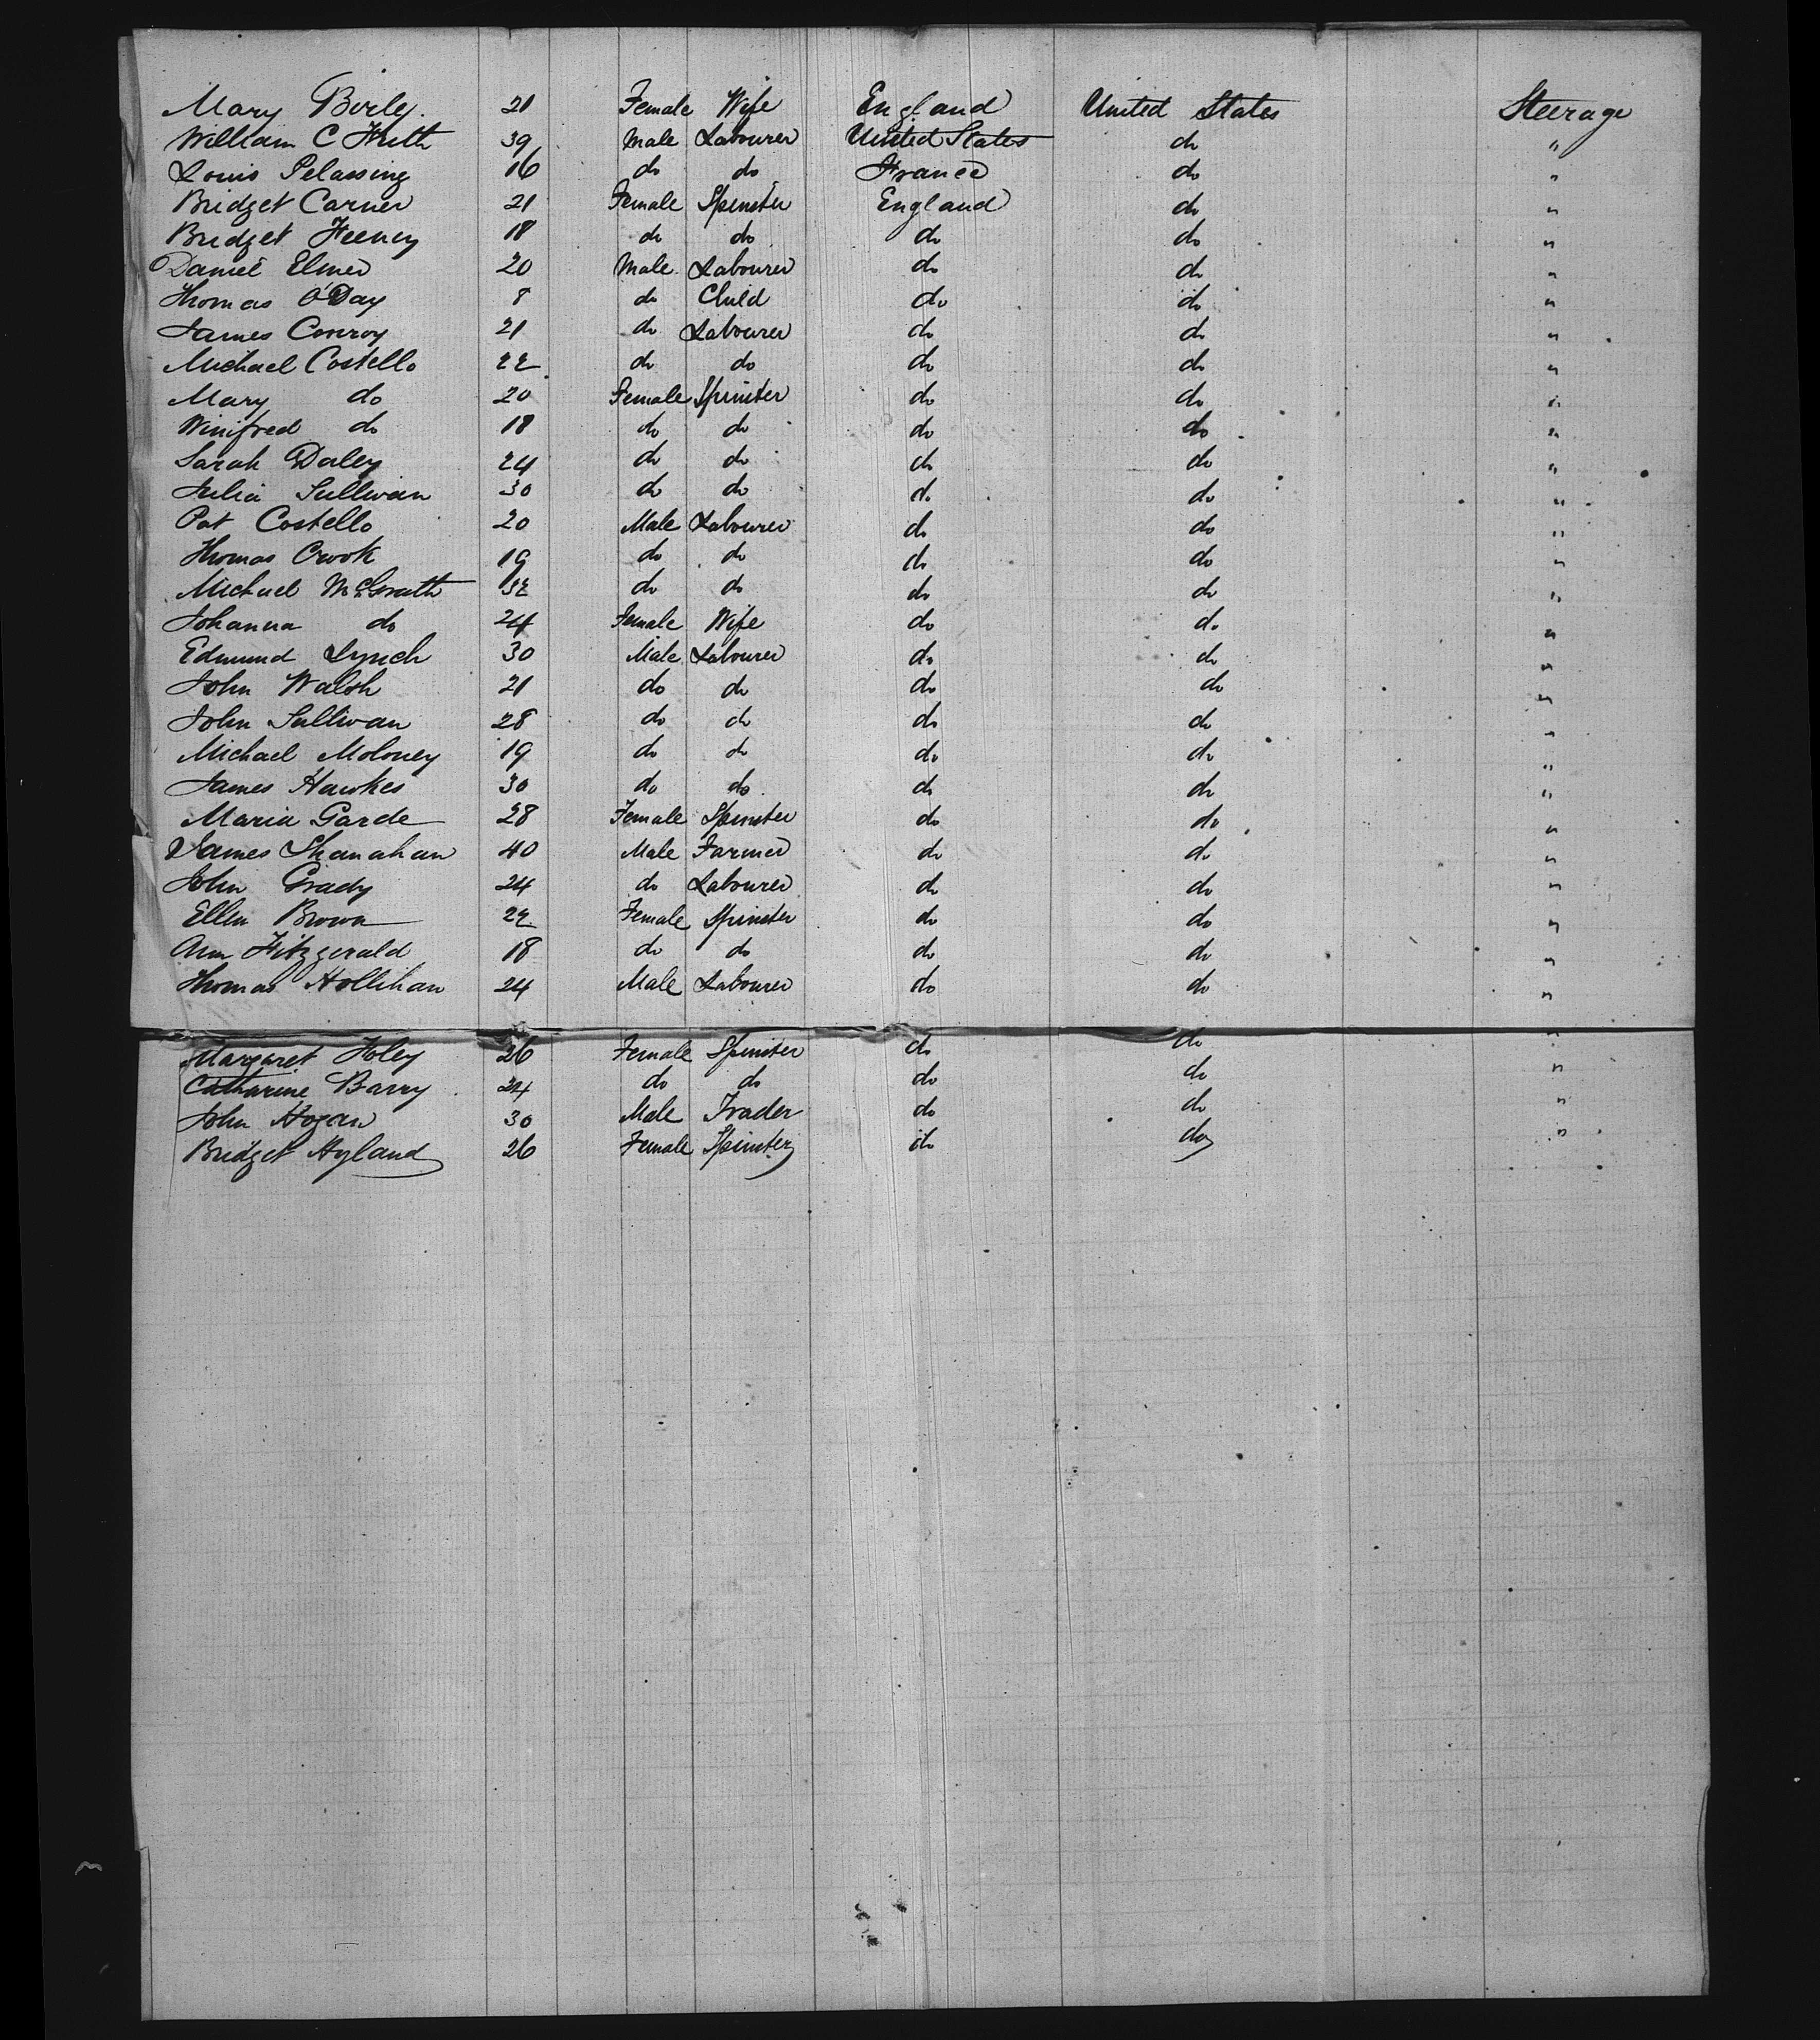 Mary Birley. 21 Female Wife England United States Steerage
William C Huth 39 Male Labourer United States do "
Louis Pelassing 16 do do France do "
Bridget Carner 21 Female Spinster England do "
Bridget Feeney 18 do do do do "
Daniel Elmer 20 Male Labourer do do "
Thomas O'Day 8 do Child do do "
James Conroy 21 do Labourer do do "
Michael Costello 22 do do do do "
Mary do 20 Female Spinster do do "
Winifred do 18 do do do do "
Sarah Daley 24 do do do do "
Julia Sullivan 30 do do do do "
Pat Costello 20 Male Labourer do do "
Thomas Crook 19 do do do do "
Michael McGrath 32 do do do do "
Johanna do 24 Female Wife do do "
Edmund Lynch 30 Male Labourer do do "
John Walsh 21 do do do do "
John Sullivan 28 do do do do "
Michael Moloney 19 do do do do "
James Hawkes 30 do do do do "
Maria Garde 28 Female Spinster do do "
James Shanahan 40 Male Farmer do do "
John Grady 24 do Labourer do do "
Ellen Brown 22 Female Spinster do do "
Ann Fitzgerald 18 do do do do "
Thomas Hollihan 24 Male Labourer do do "
Margaret Foley 26 Female Spinster do do "
Catharine Barry 24 do do do do "
John Hogan 30 Male Trader do do "
Bridget Hyland 26 Female Spinster do do "